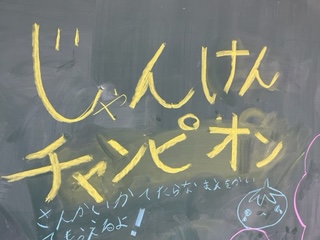 じゃんけん
チャンピオン
さんかいかてたらなまえをかい
てもらえるよ!